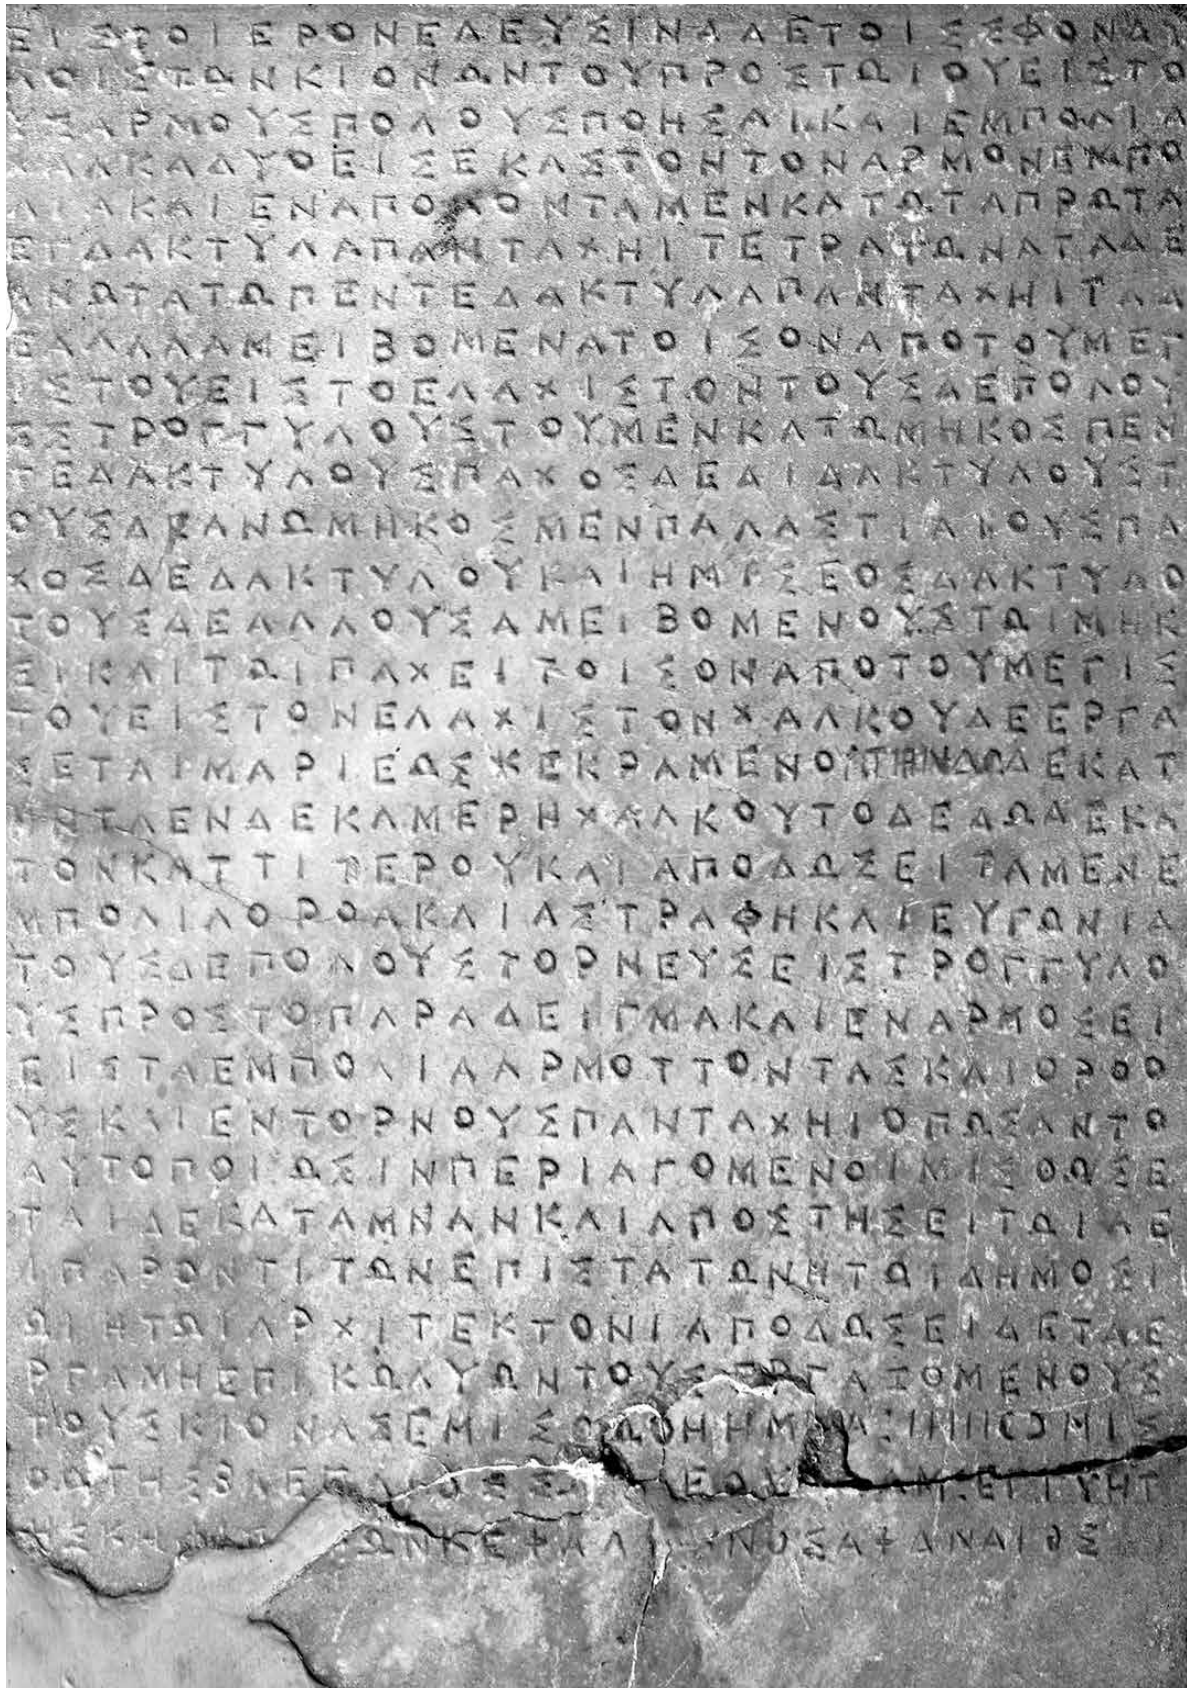 ΕΙΣΤΟΙΕΡΟΝΕΛΕΥΣΙΝΑΔΕΤΟΙΣΣΦΟΝΔΥ
ΛΟΙΣΤΩΝΚΙΟΝΩΝΤΟΥΠΡΟΣΤΩΙΟΥΕΙΣΤΟ
ΥΣΑΡΜΟΥΣΠΟΛΟΥΣΠΟΗΣΑΙΚΑΙΕΜΠΟΛΙΑ
ΧΑΛΚΑΔΥΟΕΙΣΕΚΑΣΤΟΝΤΟΝΑΡΜΟΝΕΜΠΟ
ΛΙΑΚΑΙΕΝΑΠΟΛΟΝΤΑΜΕΝΚΑΤΩΤΑΠΡΩΤΑ
ΕΓΔΑΚΤΥΛΑΠΑΝΤΑΧΗΙΤΕΤΡΑΓΩΝΑΤΑΔΕ
ΑΝΩΤΑΤΩΠΕΝΤΕΔΑΚΤΥΛΑΠΑΝΤΑΧΗΙΤΑΔ
ΕΑΛΛΑΑΜΕΙΒΟΜΕΝΑΤΟΙΣΟΝΑΠΟΤΟΥΜΕΓ
ΙΣΤΟΥΕΙΣΤΟΕΛΑΧΙΣΤΟΝΤΟΥΣΔΕΠΟΛΟΥ
ΣΣΤΡΟΓΓΥΛΟΥΣΤΟΥΜΕΝΚΑΤΩΜΗΚΟΣΠΕΝ
ΤΕΔΑΚΤΥΛΟΥΣΠΑΧΟΣΔΕΔΙΔΑΚΤΥΛΟΥΣΤ
ΟΥΣΔΕΑΝΩΜΗΚΟΣΜΕΝΠΑΛΑΣΤΙΑΙΟΥΣΠΑ
ΧΟΣΔΕΔΑΚΤΥΛΟΥΚΑΙΗΜΙΣΕΟΣΔΑΚΤΥΛΟ
ΤΟΥΣΔΕΑΛΛΟΥΣΑΜΕΙΒΟΜΕΝΟΥΣΤΩΙΜΗΚ
ΕΙΚΑΙΤΩΙΠΑΧΕΙΤΟΙΣΟΝΑΠΟΤΟΥΜΕΓΙΣ
ΤΟΥΕΙΣΤΟΝΕΛΑΧΙΣΤΟΝΧΑΛΚΟΥΔΕΕΡΓΑ
ΣΕΤΑΙΜΑΡΙΕΩΣΚΕΚΡΑΜΕΝΟΥΤΗΝΔΩΔΕΚΑΤ
ΗΝΤΑΕΝΔΕΚΑΜΕΡΗΧΑΛΚΟΥΤΟΔΕΔΩΔΕΚΑ
ΤΟΝΚΑΤΤΙΤΕΡΟΥΚΑΙΑΠΟΔΩΣΕΙΤΑΜΕΝΕ
ΜΠΟΛΙΑΟΡΘΑΚΑΙΑΣΤΡΑΦΗΚΑΙΕΥΓΩΝΙΑ
ΤΟΥΣΔΕΠΟΛΟΥΣΤΟΡΝΕΥΣΕΙΣΤΡΟΓΓΥΛΟ
ΥΣΠΡΟΣΤΟΠΑΡΑΔΕΙΓΜΑΚΑΙΕΝΑΡΜΟΣΕΙ
ΕΙΣΤΑΕΜΠΟΛΙΑΑΡΜΟΤΤΟΝΤΑΣΚΑΙΟΡΘΟ
ΥΣΚΑΙΕΝΤΟΡΝΟΥΣΠΑΝΤΑΧΗΙΟΠΩΣΑΝΤΟ
ΑΥΤΟΠΟΙΩΣΙΝΠΕΡΙΑΓΟΜΕΝΟΙΜΙΣΘΩΣΕ
ΤΑΙΔΕΚΑΤΑΜΝΑΝΚΑΙΑΠΟΣΤΗΣΕΙΤΩΙΑΕ
ΙΠΑΡΟΝΤΙΤΩΝΕΠΙΣΤΑΤΩΝΗΤΩΙΔΗΜΟΣΙ
ΩΙΗΤΩΙΑΡΧΙΤΕΚΤΟΝΙΑΠΟΔΩΣΕΙΔΕΤΑΕ
ΡΓΑΜΗΕΠΙΚΩΛΥΩΝΤΟΥΣΕΡΓΑΖΟΜΕΝΟΥΣ
ΤΟΥΣΚΙΟΝΑΣΕΜΙΣΘΩΘΗΗΜΝΑ ΜΙΣ
ΘΩΤΗΣΒΛΕΠΑΙΟΣ ΕΓΓΥΗΤ
ΗΣΚΗ ΩΝΚΕΦΑΛΙΩΝΟΣΑΦΙΔΝΑΙΟΣ